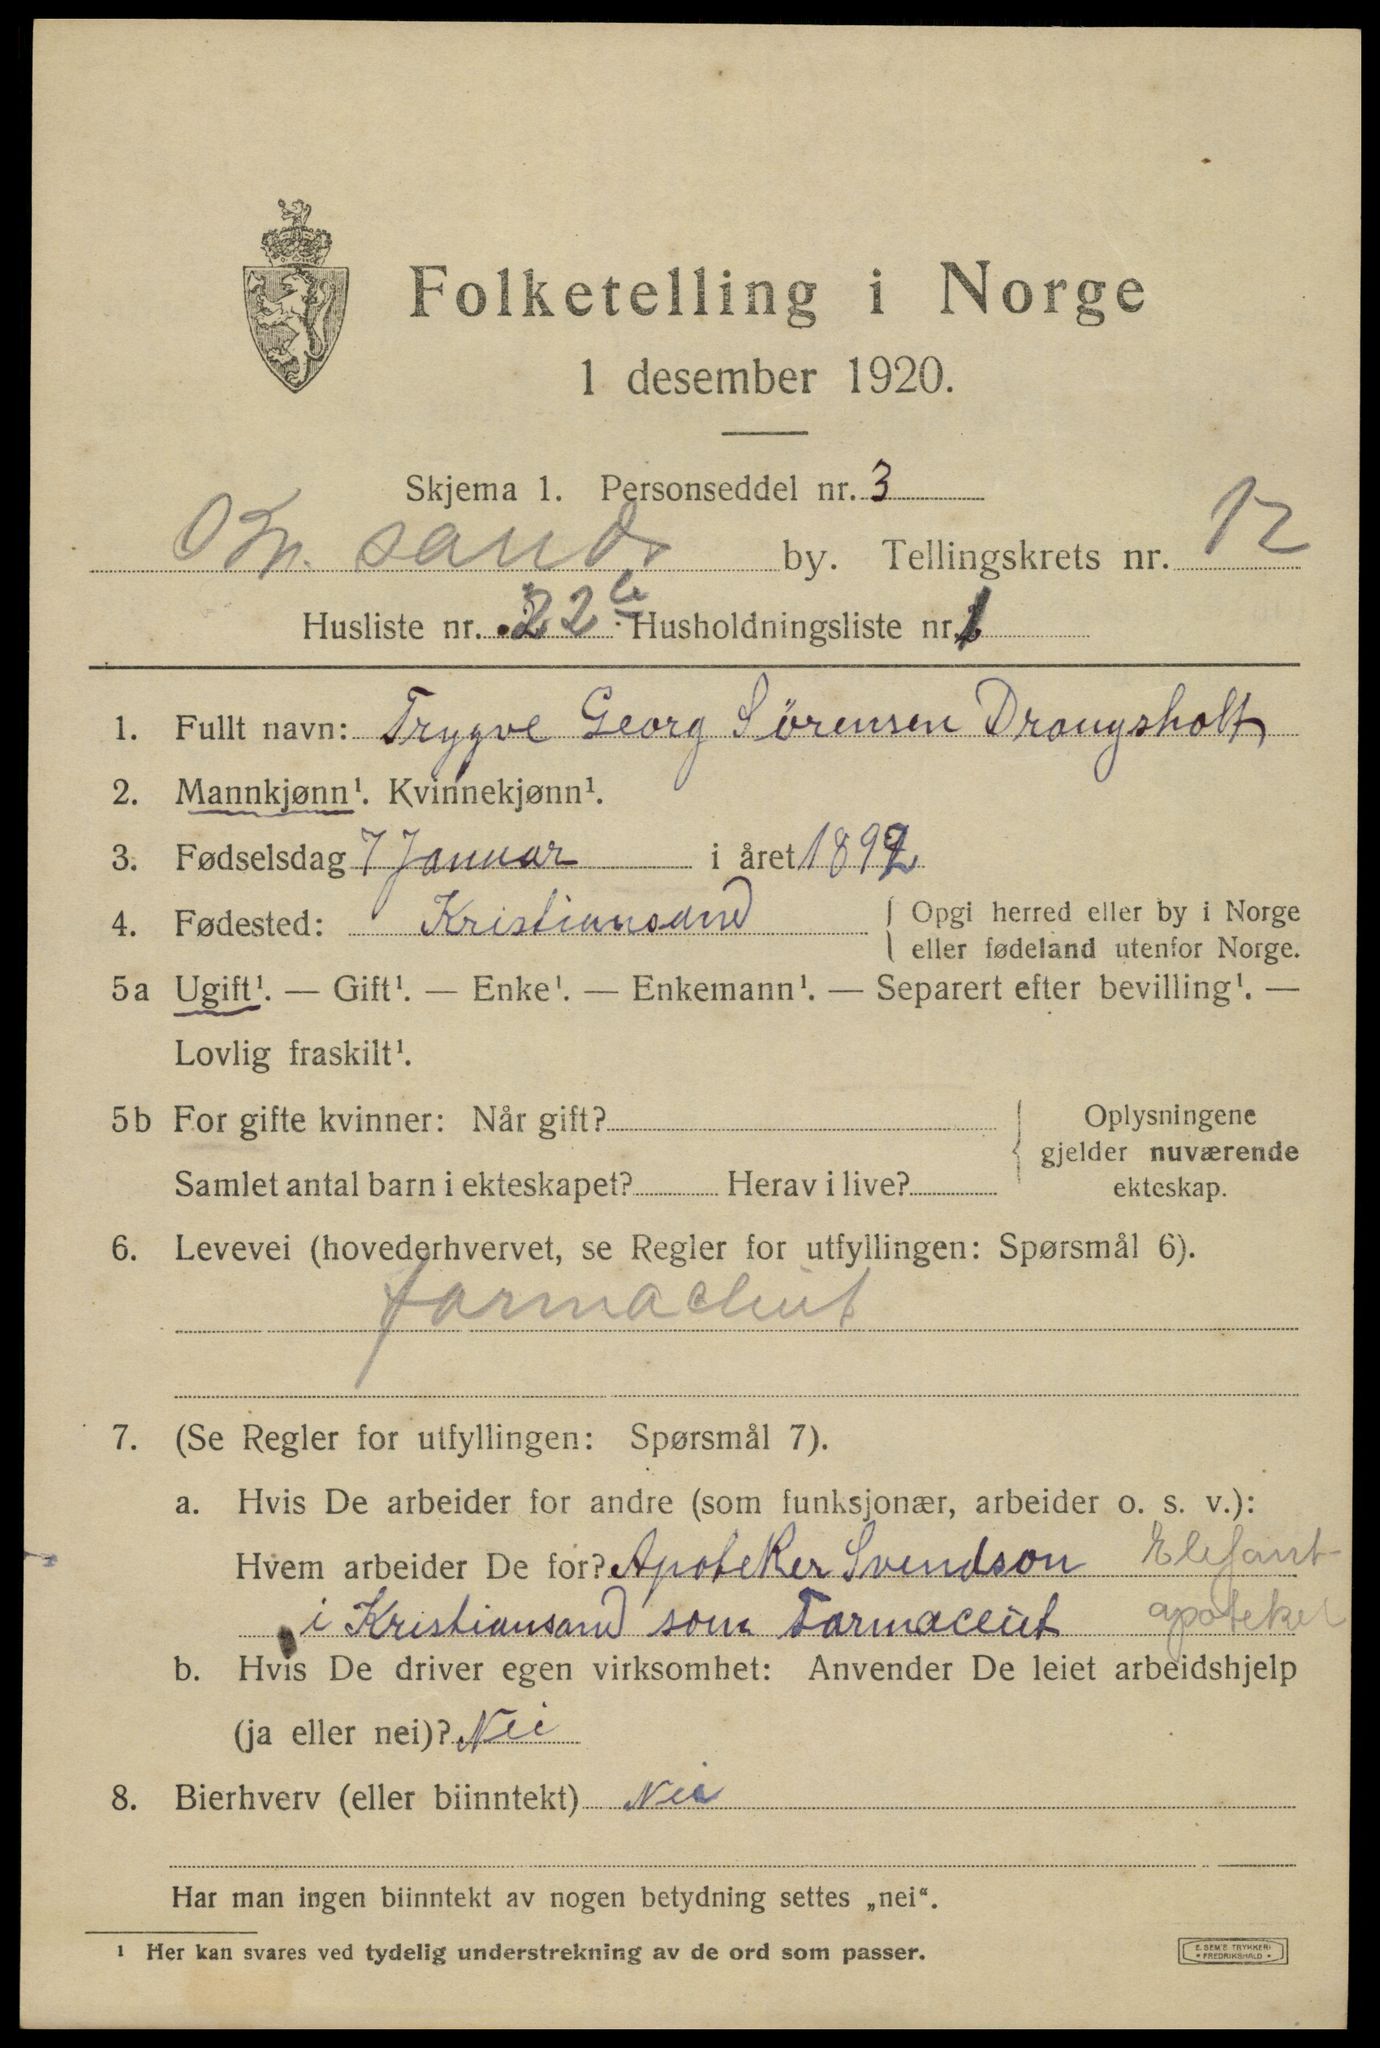 Folketelling i Norge
1 desember 1920.
Skjema 1. Personseddel nr. 3
Kr. sands by. Tellingskrets nr. 12
Husliste nr. 22 b Husholdningsliste nr. 1
1. Fullt navn: Trygve Georg Sörensen Drangsholt
2. Mannkjønn¹. Kvinnekjønn¹.
3. Fødselsdag 7 Januar i året 1892
4. Fødested: Kristiansand { Opgi herred eller by i Norge
eller fødeland utenfor Norge.
5a Ugift¹. — Gift¹. — Enke¹. — Enkemann¹. — Separert efter bevilling¹. —
Lovlig fraskilt¹.
5b For gifte kvinner: Når gift? Oplysningene
gjelder nuværende
Samlet antal barn i ekteskapet? Herav i live? ekteskap.
6. Levevei (hovederhvervet, se Regler for utfyllingen: Spørsmål 6).
farmaceut
7. (Se Regler for utfyllingen: Spørsmål 7).
a. Hvis De arbeider for andre (som funksjonær, arbeider o. s. v.):
Hvem arbeider De for? Apoteker Svendson Elefant-
i Kristiansand som Farmaceut apoteket
b. Hvis De driver egen virksomhet: Anvender De leiet arbeidshjelp
(ja eller nei)? Nei
8. Bierhverv (eller biinntekt) Nei
Har man ingen biinntekt av nogen betydning settes „nei“.
¹ Her kan svares ved tydelig understrekning av de ord som passer.
E. SEM'S TRYKKERI
• FREDRIKSHALD •